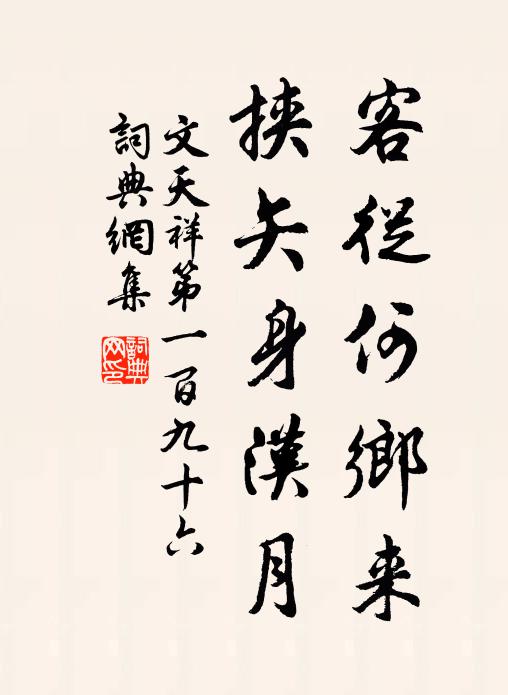 客從何鄉来
挾矢身漢月
文天祥第一百九十六
詞典網集
詞典网印